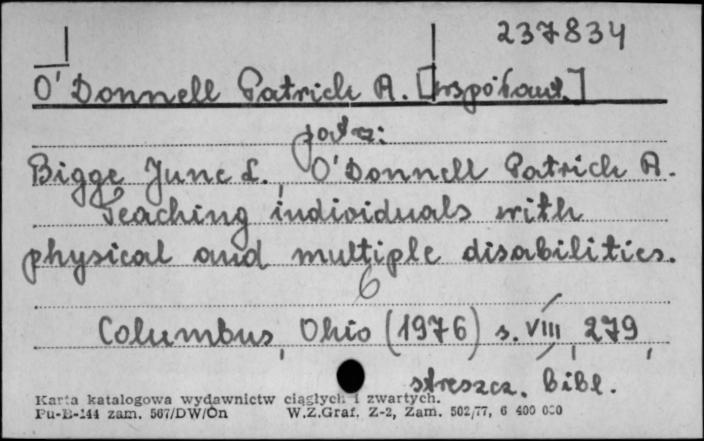 237834
O'Donnell Patrick A. [współaut.]
patrz:
Bigge June L., O'Donnell Patrick A.
Teaching individuals with
physical and multiple disabilities.
6
Columbus, Ohio (1976) s. VIII, 279,
streszcz. bibl.
Karta katalogowa wydawnictw ciągłych i zwartych.
Pu-B-144 zam. 567/DW/On W.Z.Graf. Z-2, Zam. 502/77, 6 400 000